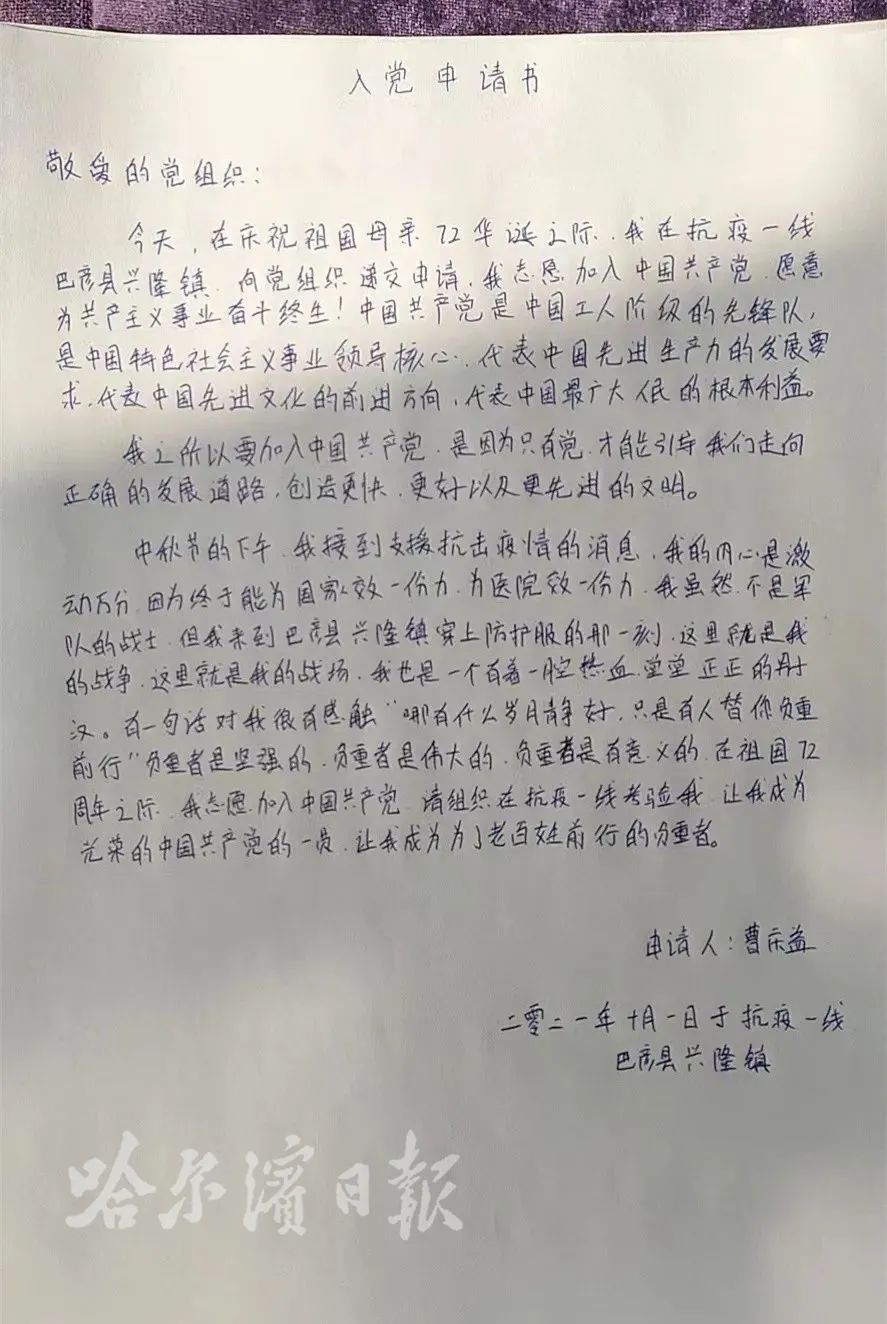 入党申请书
敬爱的党组织：
今天，在庆祝祖国母亲72华诞之际，我在抗疫一线
巴彦县兴隆镇，向党组织递交申请，我志愿加入中国共产党，愿意
为共产主义事业奋斗终生！中国共产党是中国工人阶级的先锋队，
是中国特色社会主义事业领导核心，代表中国先进生产力的发展要
求，代表中国先进文化的前进方向，代表中国最广大人民的根本利益。
我之所以要加入中国共产党，是因为只有党，才能引导我们走向
正确的发展道路，创造更快，更好以及更先进的文明。
中秋节的下午，我接到支援抗击疫情的消息，我的内心是激
动万分，因为终于能为国家效一份力，为医院效一份力，我虽然不是军
队的战士，但我来到巴彦县兴隆镇穿上防护服的那一刻，这里就是我
的战争，这里就是我的战场，我也是一个有着一腔热血，堂堂正正的男子
汉。有一句话对我很有感触“哪有什么岁月静好，只是有人替你负重
前行”负重者是坚强的，负重者是伟大的，负重者是有意义的，在祖国72
周年之际，我志愿加入中国共产党，请组织在抗疫一线考验我，让我成为
光荣的中国共产党的一员，让我成为为了老百姓前行的负重者。
申请人：曹庆益
二零二一年十月一日于抗疫一线
巴彦县兴隆镇
哈尔滨日報